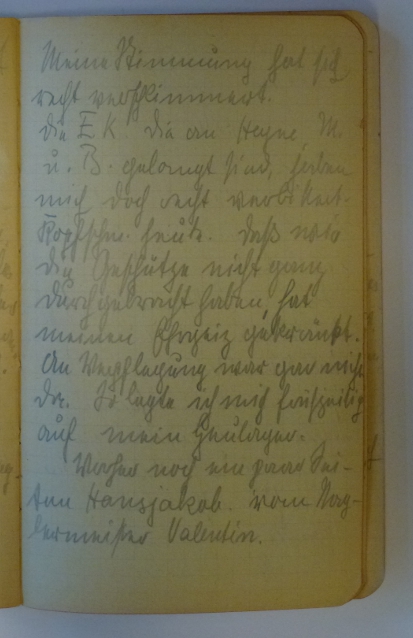 Meine Stimmung hat sich
recht verschlimmert.
die E K die an Heyne, M.
u. B. gelangt sind, haben
mich doch recht verbittert.
Kopfschm. heute. Daß wir
die Geschütze nicht ganz
durchgebracht haben, hat
meinen Ehrgeiz gekränkt.
An Verpflegung war gar nichts
da. So legte ich mich frühzeitig
auf mein Heulager.
Vorher noch ein paar Sei-
ten Hansjakob. vom Nag-
lermeister Valentin.